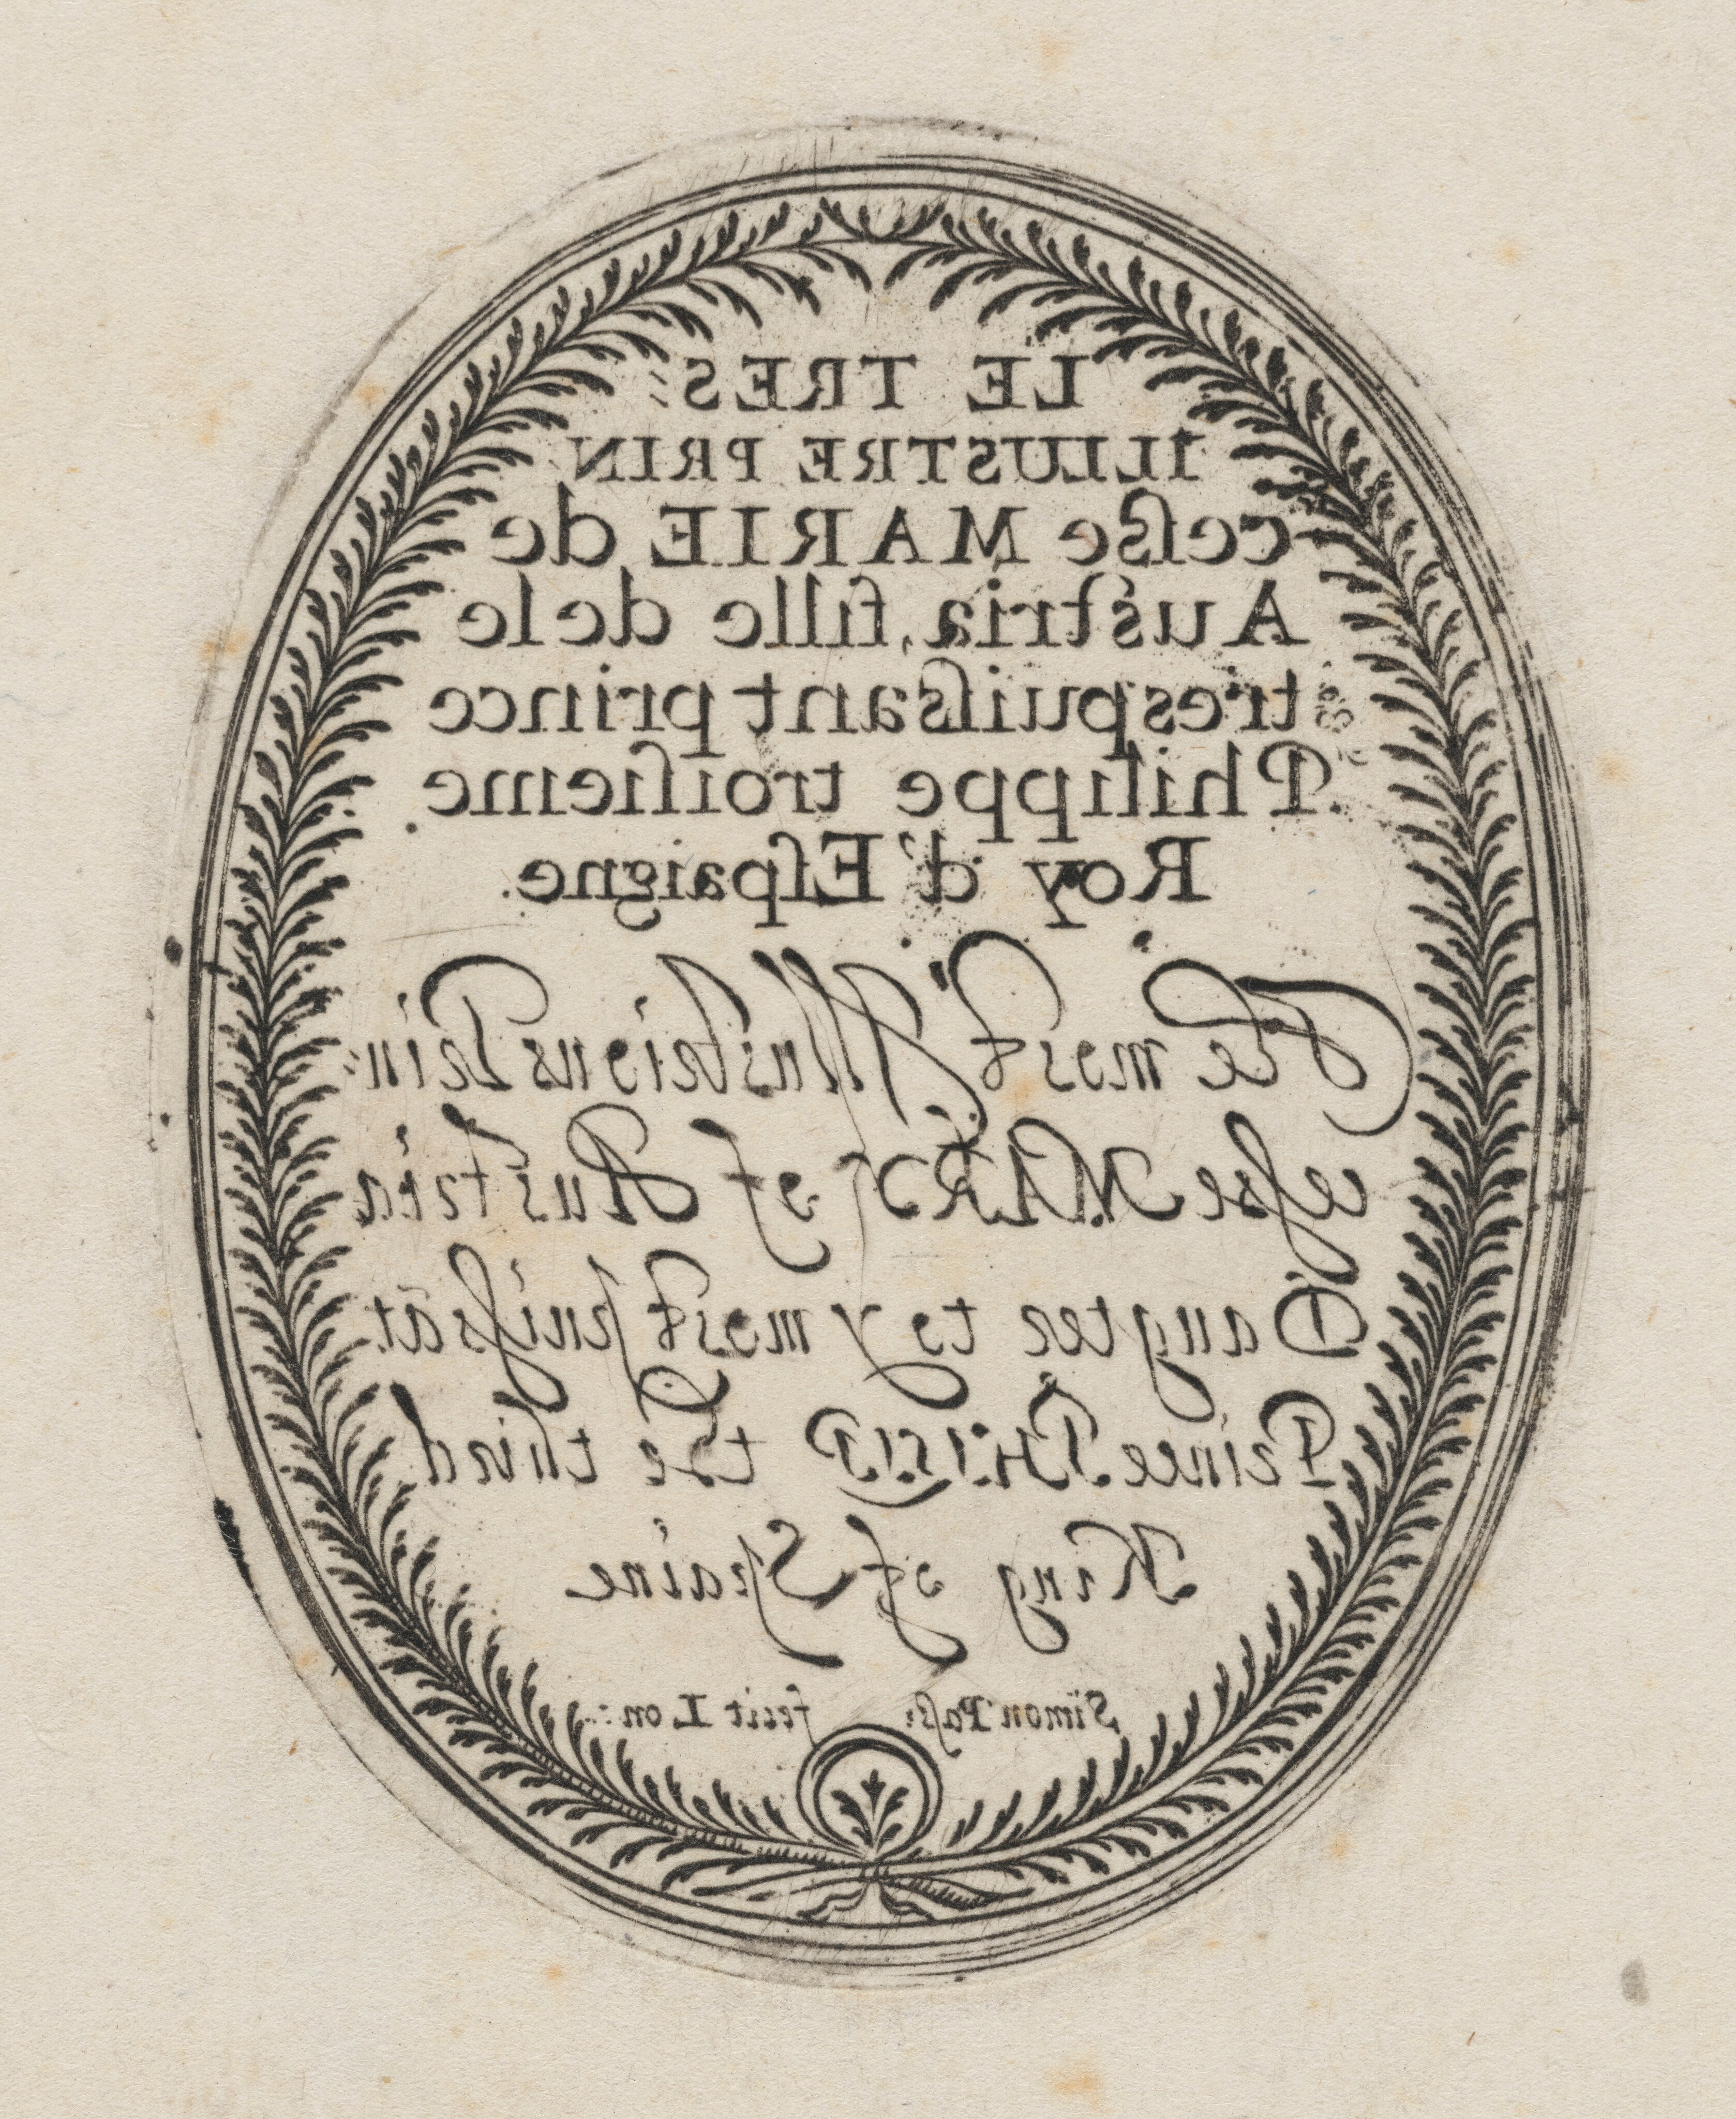 LE TRES:
ILLUSTRE PRIN
ceſse MARIE de
Austria, fille de le
trespuiſsant prince
Philippe troiſieme
Roy d'Eſpaigne.
The most Illustrious Prin:
ceſse MARY of Austria
Daugter to y most puiſsāt
Prince PHILIP the third
King of Spaine
Simon Paſs: fecit Lon: